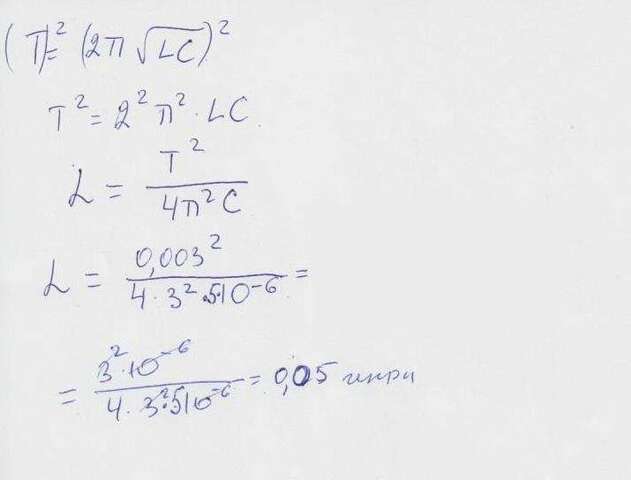 (T)² = (2π √LC)²
T² = 2² π² · LC
L = T² / 4π²C
L = 0,003² / 4 · 3² · 5·10⁻⁶ =
= 3² · 10⁻⁶ / 4 · 3² · 5·10⁻⁶ = 0,05 генри